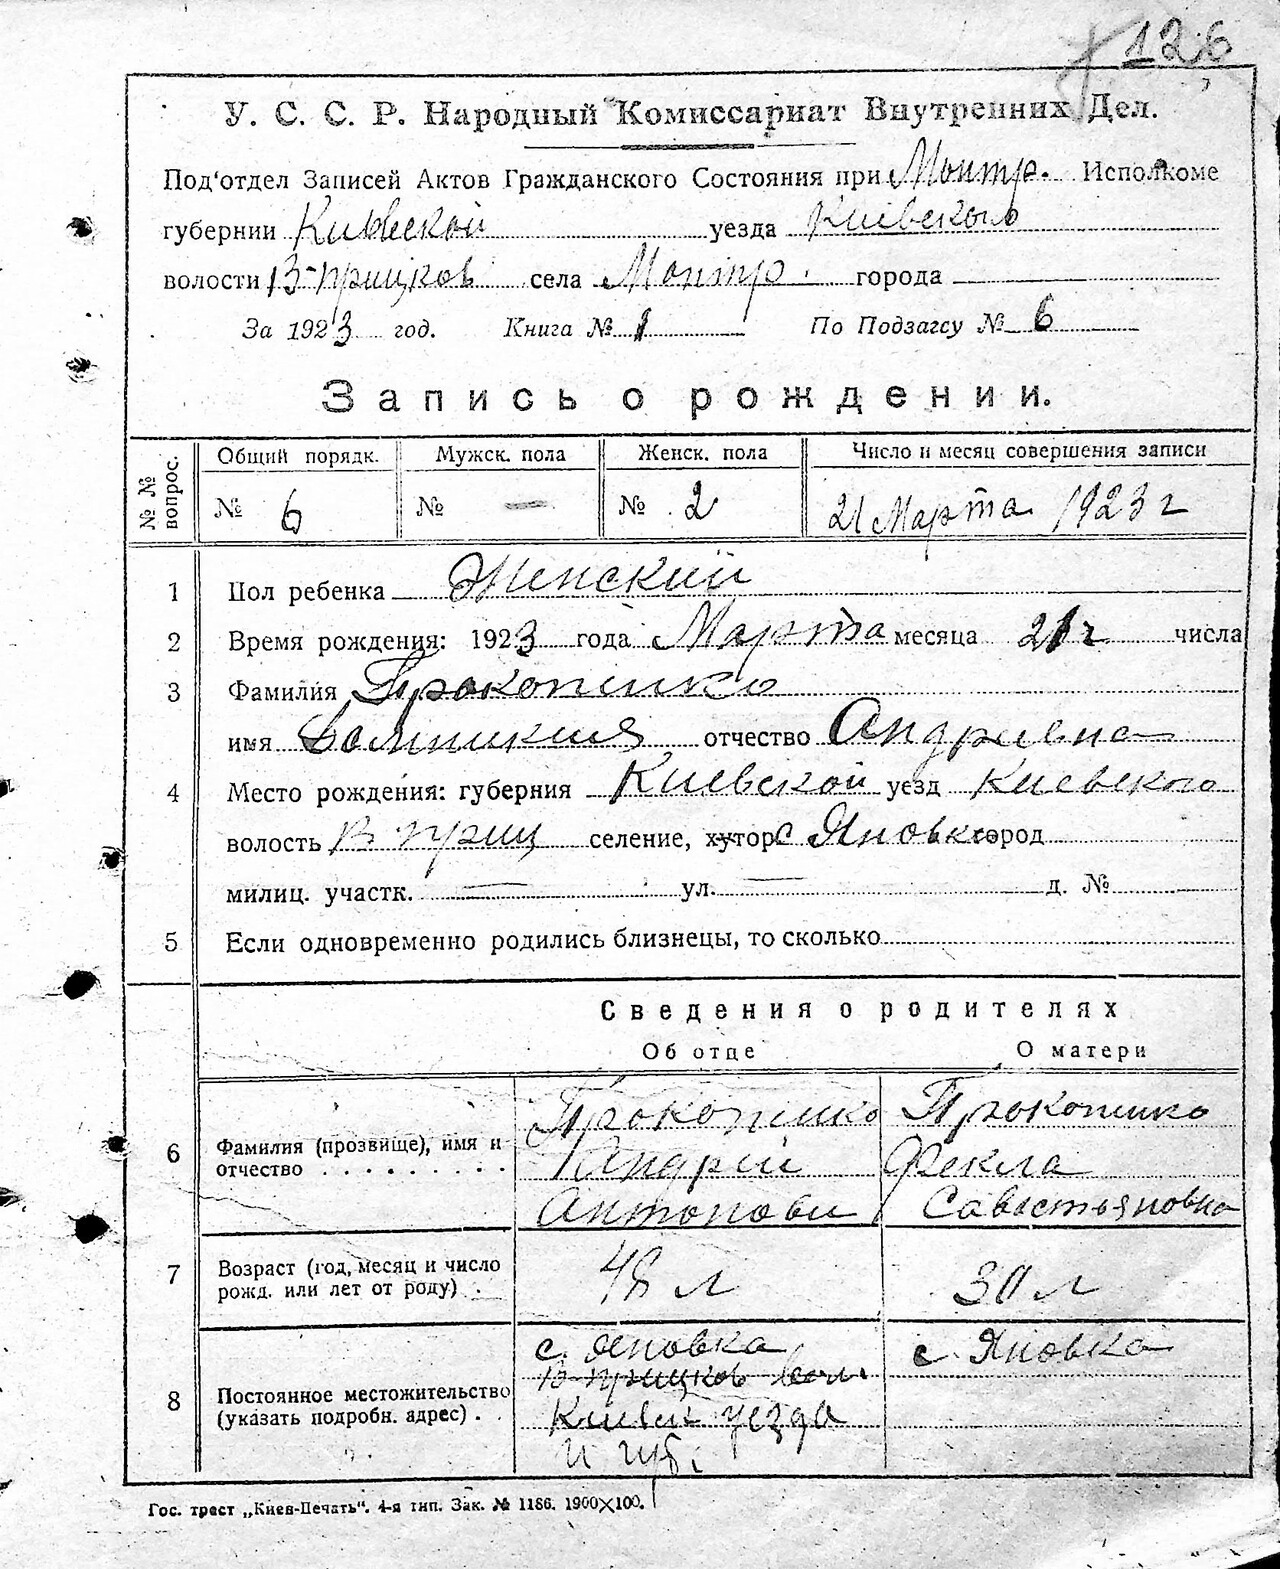 126
У. С. С. Р. Народный Комиссариат Внутренних Дел.
Под'отдел Записей Актов Гражданского Состояния при Мотр. Исполкоме
губернии Киевской уезда Киевского
волости В-прицков села Мотр. города
За 1923 год. Книга № 1 По Подзагсу № 6
Запись о рождении.
№ № вопрос. Общий порядк. Мужск. пола Женск. пола Число и месяц совершения записи
№ 6 № — № 2 21 Марта 1923 г
1 Пол ребенка Женский
2 Время рождения: 1923 года Марта месяца 21 г числа
3 Фамилия Прокопенко
имя отчество Андриевна
4 Место рождения: губерния Киевской уезд Киевского
волость В приц селение, хутор с Яновка город
милиц. участк. — ул. — д. №
5 Если одновременно родились близнецы, то сколько
Сведения о родителях
Об отце О матери
6 Фамилия (прозвище), имя и отчество
Прокопенко Прокопенко
Андрій Фекла
Антонови Савастьяновна
7 Возраст (год, месяц и число рожд. или лет от роду) .
48 л 30 л
8 Постоянное местожительство (указать подробн. адрес) .
с. Яновка с. Яновка
В-прицков вол
Киевск уезда
и губ.
Гос. трест „Киев-Печать“. 4-я тип. Зак. № 1186. 1900×100.